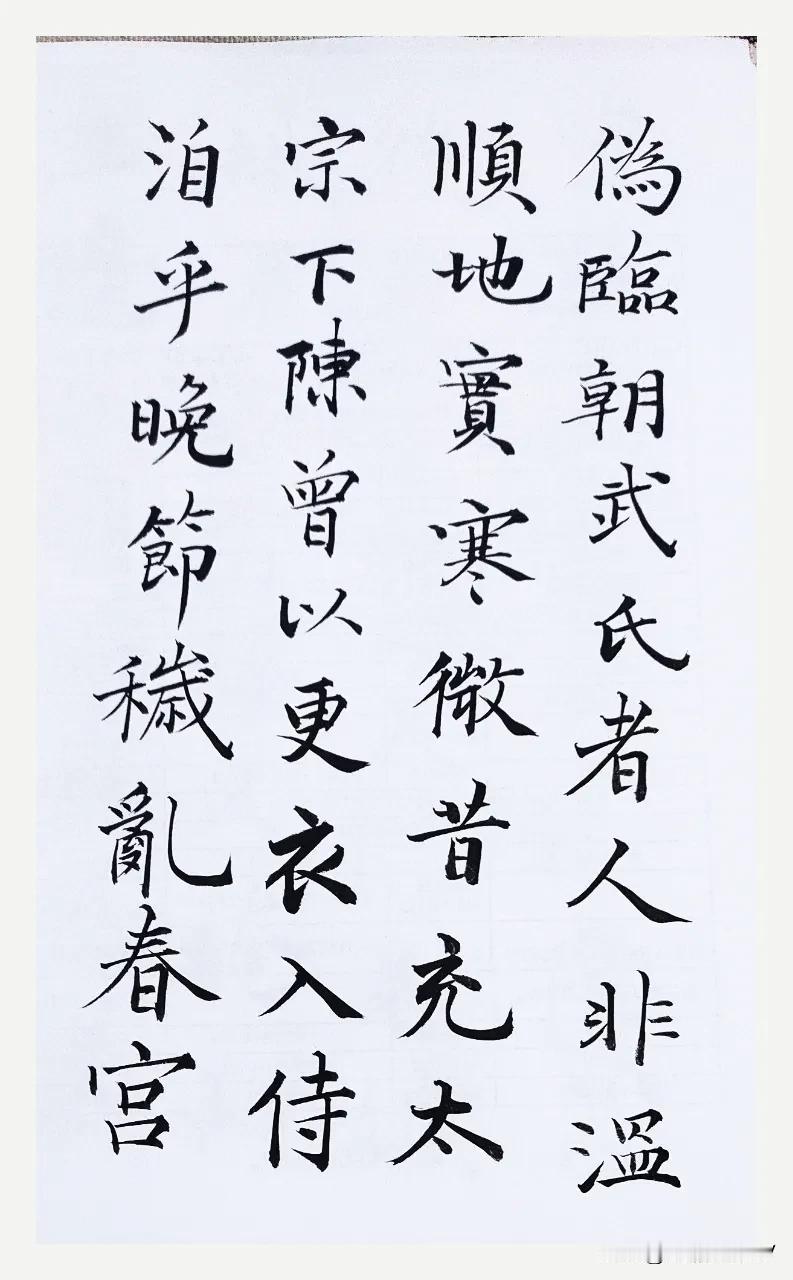 偽臨朝武氏者人非溫
順地實寒微昔充太
宗下陳曾以更衣入侍
洎乎晚節穢亂春宮